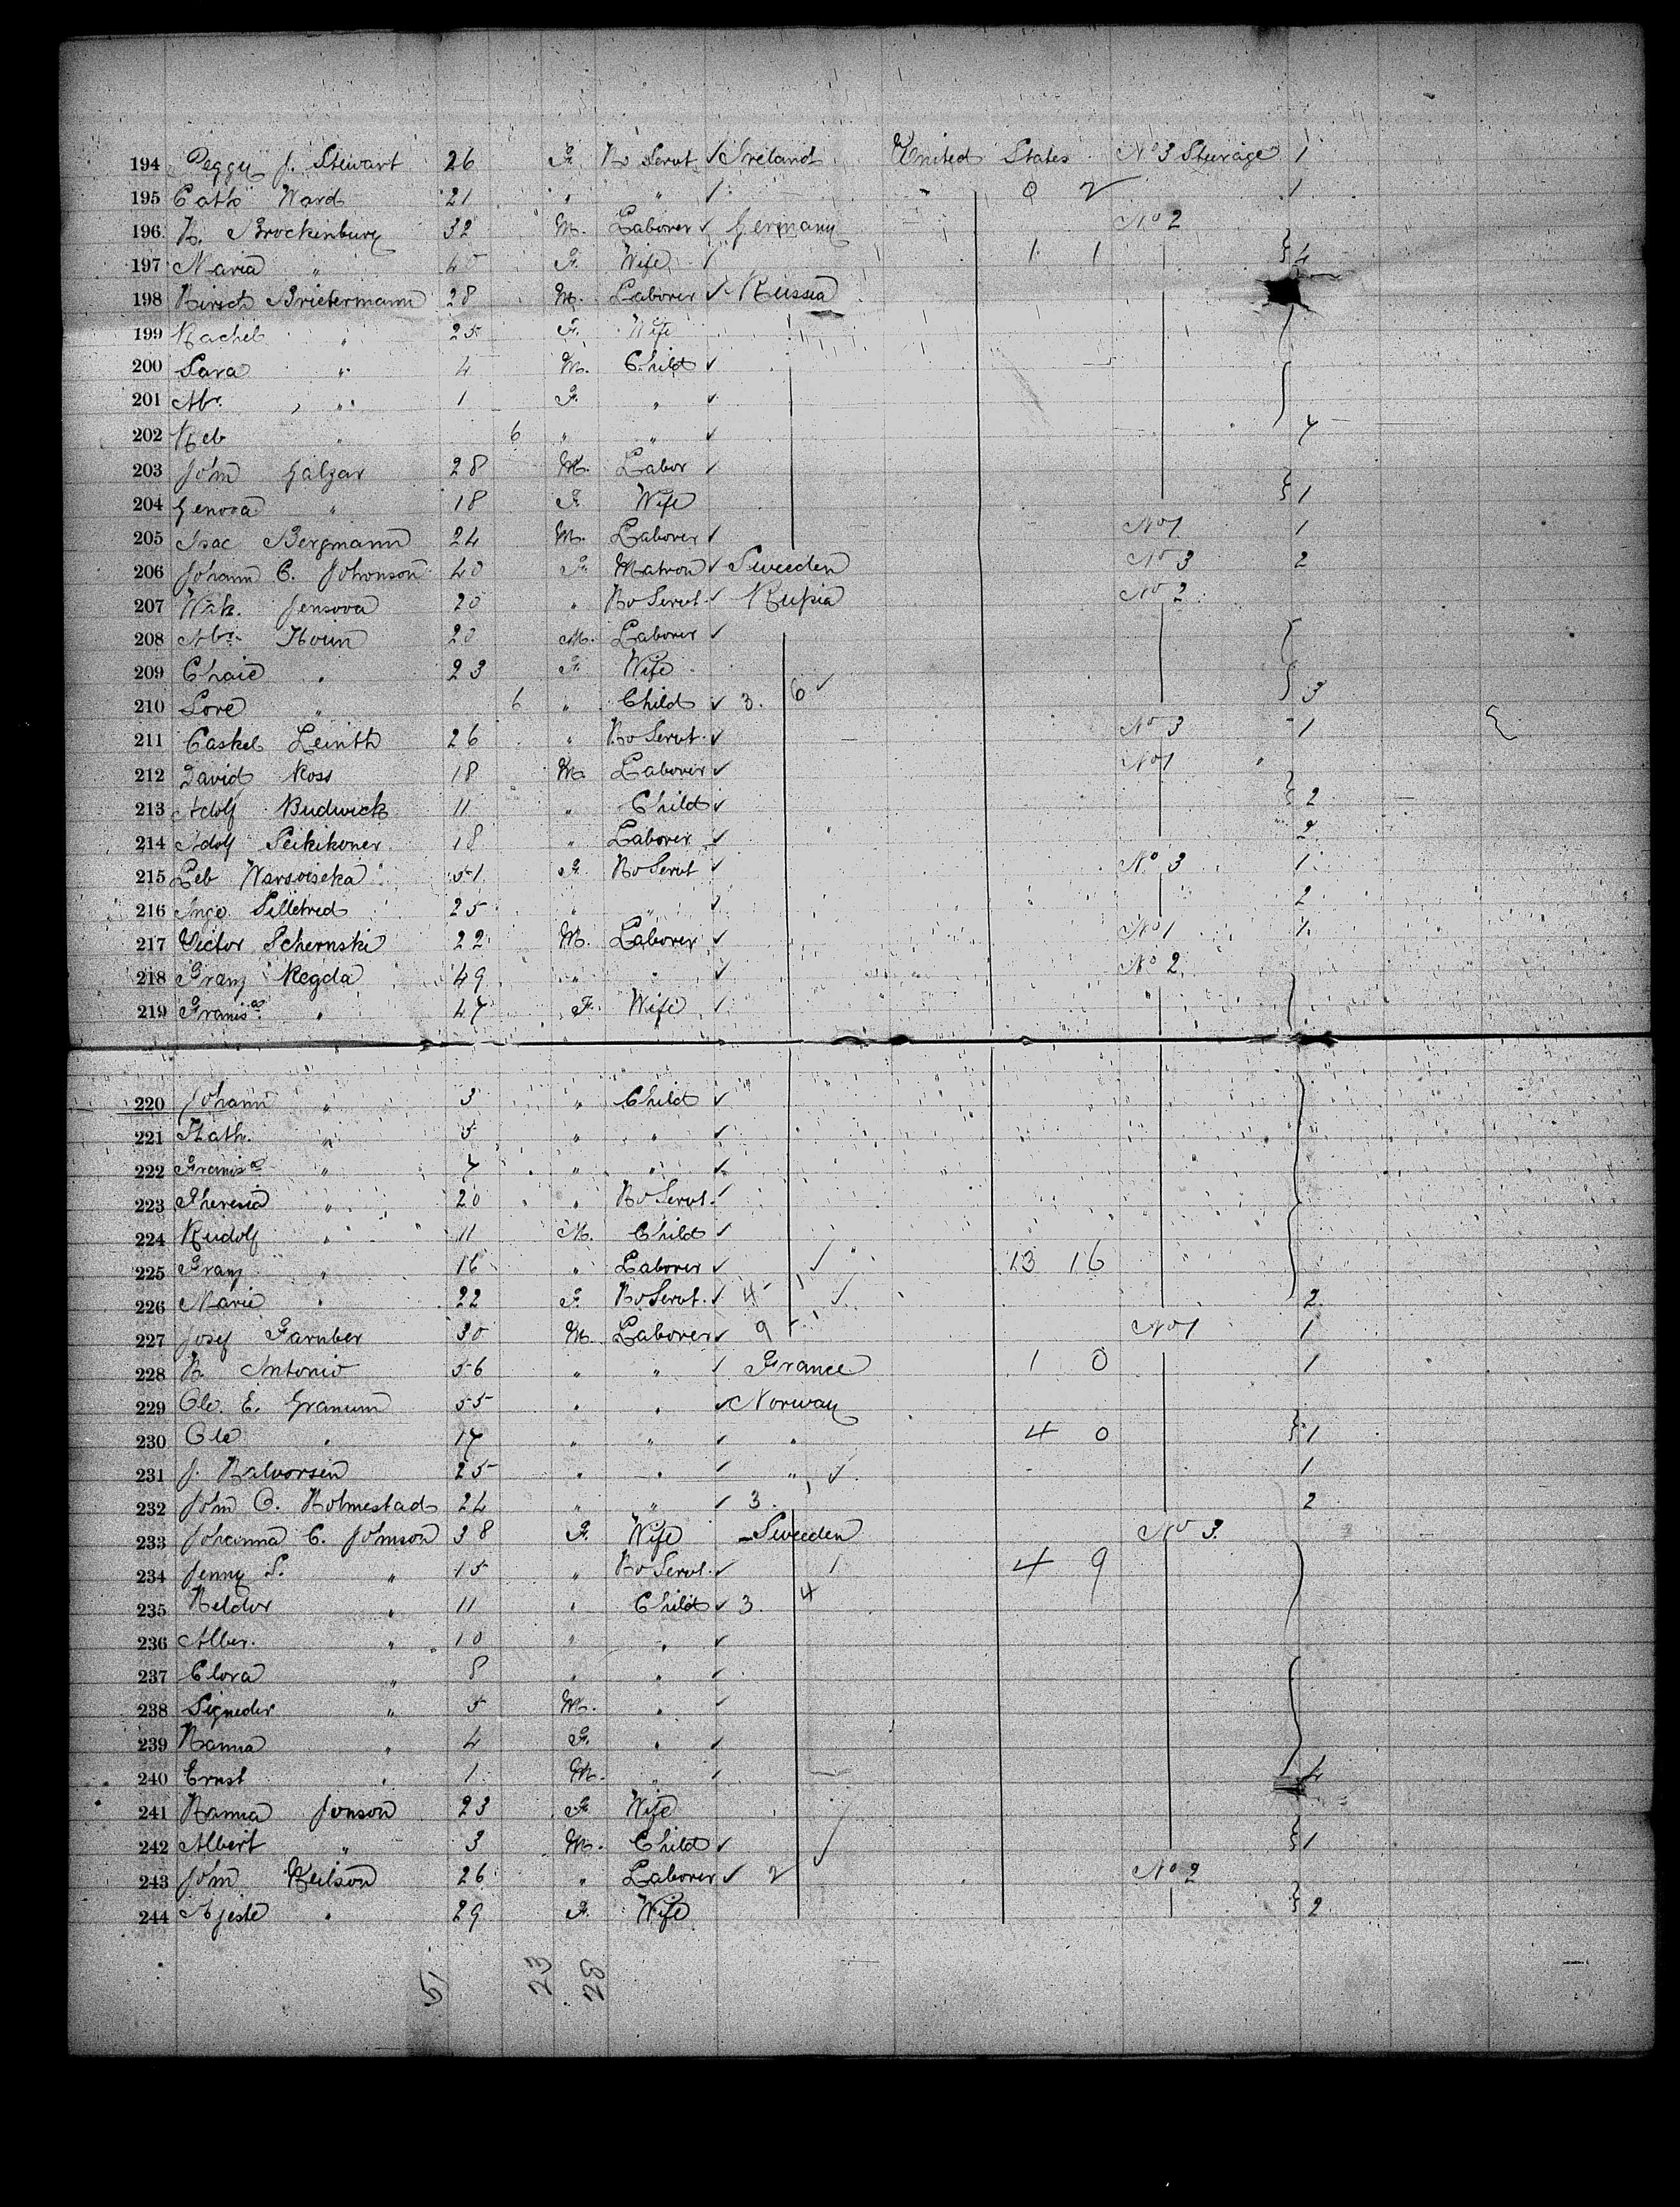 194 Peggy J. Stewart 26 F. Ho Servt ✓ Ireland United States No 3 Steerage 1
195 Cath Ward 21 " " ✓ 0 2 1
196 H. Brockenburg 32 M. Laborer ✓ Germany No 2
197 Maria " 40 F. Wife ✓ 1 1 } 4
198 Hirsch Brietermann 28 M. Laborer ✓ Russia
199 Rachel " 25 F. Wife
200 Sara " 4 M. Child ✓
201 Abr. " 1 F. " ✓
202 Reb " 6 " " ✓ 7
203 John Galgar 28 M. Labor ✓
204 Genova " 18 F. Wife } 1
205 Isac Bergmann 24 M. Laborer ✓ No 1 1
206 Johann C. Johonson 40 F. Matron ✓ Sweeden No 3 2
207 Jensova 20 " Ho Servt. ✓ Russia No 2
208 Abr. 20 M. Laborer ✓
209 Chaie " 23 F. Wife
210 Lore " 6 " Child ✓ 3. 6 ✓ } 3
211 Caskel Leinth 26 " Ho Servt. ✓ No 3 1
212 David Ross 18 M. Laborer ✓ No 1 "
213 Adolf Budwick 11 " Child ✓ } 2
214 Adolf Peikikoner 18 " Laborer ✓ 2
215 Leb Warsoiseka 51 F. Ho Servt ✓ No 3 1
216 Inge Silletred 25 " " ✓ 2
217 Victor Schernski 22 M. Laborer ✓ No 1 1
218 Franz Regda 49 " " ✓ No 2
219 Franisca " 47 F. Wife ✓
220 Johann " 3 " Child ✓
221 Kath. " 5 " " ✓
222 Franisca " 7 " " ✓
223 Theresia " 20 " Ho Servt. ✓
224 Rudolf " 11 M. Child ✓
225 Franz " 16 " Laborer ✓ ✓ 13 16
226 Marie " 22 F. Ho Servt. ✓ 4 ✓ 2
227 Josef Farnber 30 M. Laborer ✓ 9 No 1 1
228 H. Antonio 56 " " ✓ France 1 0 1
229 Ole. E. Granum 55 " " ✓ Norway
230 Ole " 17 " " ✓ " 4 0 } 1
231 J. Halvorsen 25 " " ✓ " ✓ 1
232 John O. Holmestad 24 " " ✓ 3. 2
233 Johanna C. Johnson 38 F. Wife Sweeden No 3.
234 Jenny S. " 15 " Ho Servt. ✓ 1 4 9
235 Heldor " 11 " Child ✓ 3. 4
236 Alber. " 10 " " ✓
237 Clora " 8 " " ✓
238 Signeder " 5 M. " ✓
239 Hanna " 4 F. " ✓
240 Ernst " 1 M. " ✓ 4
241 Hanna Jonson 23 F. Wife
242 Albert " 3 M. Child ✓ ✓ } 1
243 John Neilson 26 " Laborer ✓ 2 No 2
244 " 29 F. Wife } 2
51 23 28